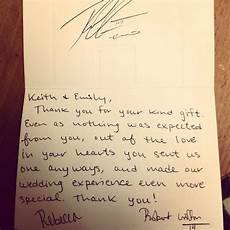 Keith & Emily,
Thank you for your kind gift.
Even as nothing was expected
from you, out of the love
in your hearts you sent us
one anyways, and made our
wedding experience even more
special. Thank you!
Rebecca Robert